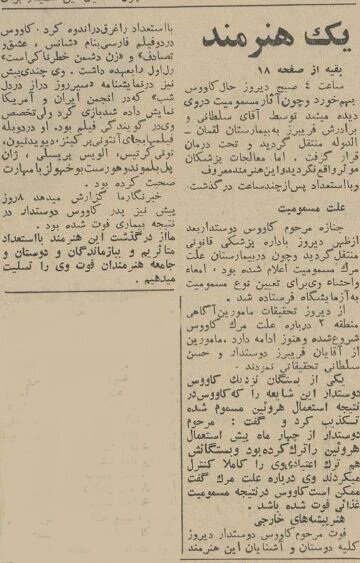 یک هنرمند
بقیه از صفحه ۱۸
ساعت ۴ صبح دیروز حال کاووس
بهم خورد و چون آثار مسمومیت در وی
دیده میشد توسط آقای سلطانی و
برادرش فریبرز به بیمارستان لقمان –
الدوله منتقل گردید و تحت درمان
قرار گرفت . اما معالجات پزشکان
موثر واقع نگردید و این هنرمند معروف
و با استعداد پس از چند ساعت درگذشت
علت مسمومیت
جنازه مرحوم کاووس دوستدار بعد
از ظهر دیروز باداره پزشکی قانونی
منتقل گردید و چون در بیمارستان علت
مرگ مسمومیت اعلام شده بود ، امعاء
واحشاء وی برای تعیین نوع مسمومیت
به آزمایشگاه فرستاده شد .
از دیروز تحقیقات مامورین آگاهی
منطقه ۲ درباره علت مرگ کاووس
شروع شده و هنوز ادامه دارد . مامورین
از آقایان فریبرز دوستدار و حسن
سلطانی تحقیقاتی نمودند .
یکی از بستگان نزدیک کاووس
دوستدار این شایعه را که کاووس در
نتیجه استعمال هروئین مسموم شده
تکذیب کرد و گفت : مرحوم
دوستدار از چهار ماه پیش استعمال
هروئین را ترک کرده بود و بستگانش
هم ترک اعتیاد وی را کاملا کنترل
میکردند وی درباره علت مرگ گفت
ممکن است کاووس در نتیجه مسمومیت
غذائی فوت شده باشد .
هنرپیشه‌های خارجی
فوت مرحوم کاووس دوستدار دیروز
کلیه دوستان و آشنایان این هنرمند
با استعداد را غرق در اندوه کرد . کاووس
در دو فیلم فارسی بنام «شانس ، عشق و
تصادف» و «زن دشمن خطرناکی است»
رل اول را بعهده داشت . وی چندی پیش
نیز در نمایشنامه «سیر روز در از در دل
شب» که در انجمن ایران و آمریکا
نمایش داده شد بازی کرد ولی تخصص
وی در گویندگی فیلم بود . او در دوبله
فیلمها بجای آنتونی پرکینز ، دیوید نیون ،
تونی کرتیس ، الویس پریسلی ، ژان
پل بلموندو و هورست بوخهولز با مهارت
صحبت کرده بود .
خبرنگار ما گزارش میدهد ۸ روز
پیش نیز پدر کاووس دوستدار در
نتیجه بیماری فوت شده بود .
ما از درگذشت این هنرمند با استعداد
متاثریم و ببازماندگان و دوستان و
جامعه هنرمندان فوت وی را تسلیت
میدهیم .